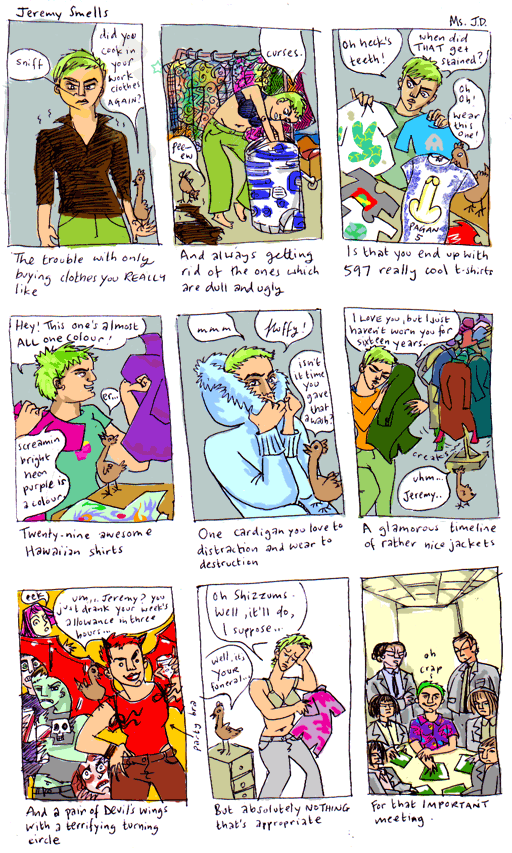 Jeremy Smells
Ms. J.D.
Sniff
did you
cook in
your
work
clothes
AGAIN?
The trouble with only
buying clothes you REALLY
like
curses.
Pee-
ew
And always getting
rid of the ones which
are dull and ugly
Oh heck's
teeth!
when did
THAT get
stained?!
Oh
Oh!
wear
this
one!
A
PAGAN
5
Is that you end up with
597 really cool t-shirts
Hey! This one's almost
ALL one colour!
er...
screamin
bright
neon
purple is
a colour.
Twenty-nine awesome
Hawaiian shirts
mmm
fluffy!
isn't
it time
you
gave
that
a wash?
One cardigan you love to
distraction and wear to
destruction
I LOVE you, but I just
haven't worn you for
sixteen years.
creak
uhm...
Jeremy..
A glamorous timeline
of rather nice jackets
eek
um... Jeremy? you
just drank your week's
allowance in three
hours...
And a pair of Devil's wings
with a terrifying turning
circle
party bra
Oh Shizzums.
Well, it'll do,
I suppose...
well, it's
your
funeral...
But absolutely NOTHING
that's appropriate
oh
crap
For that IMPORTANT
meeting.